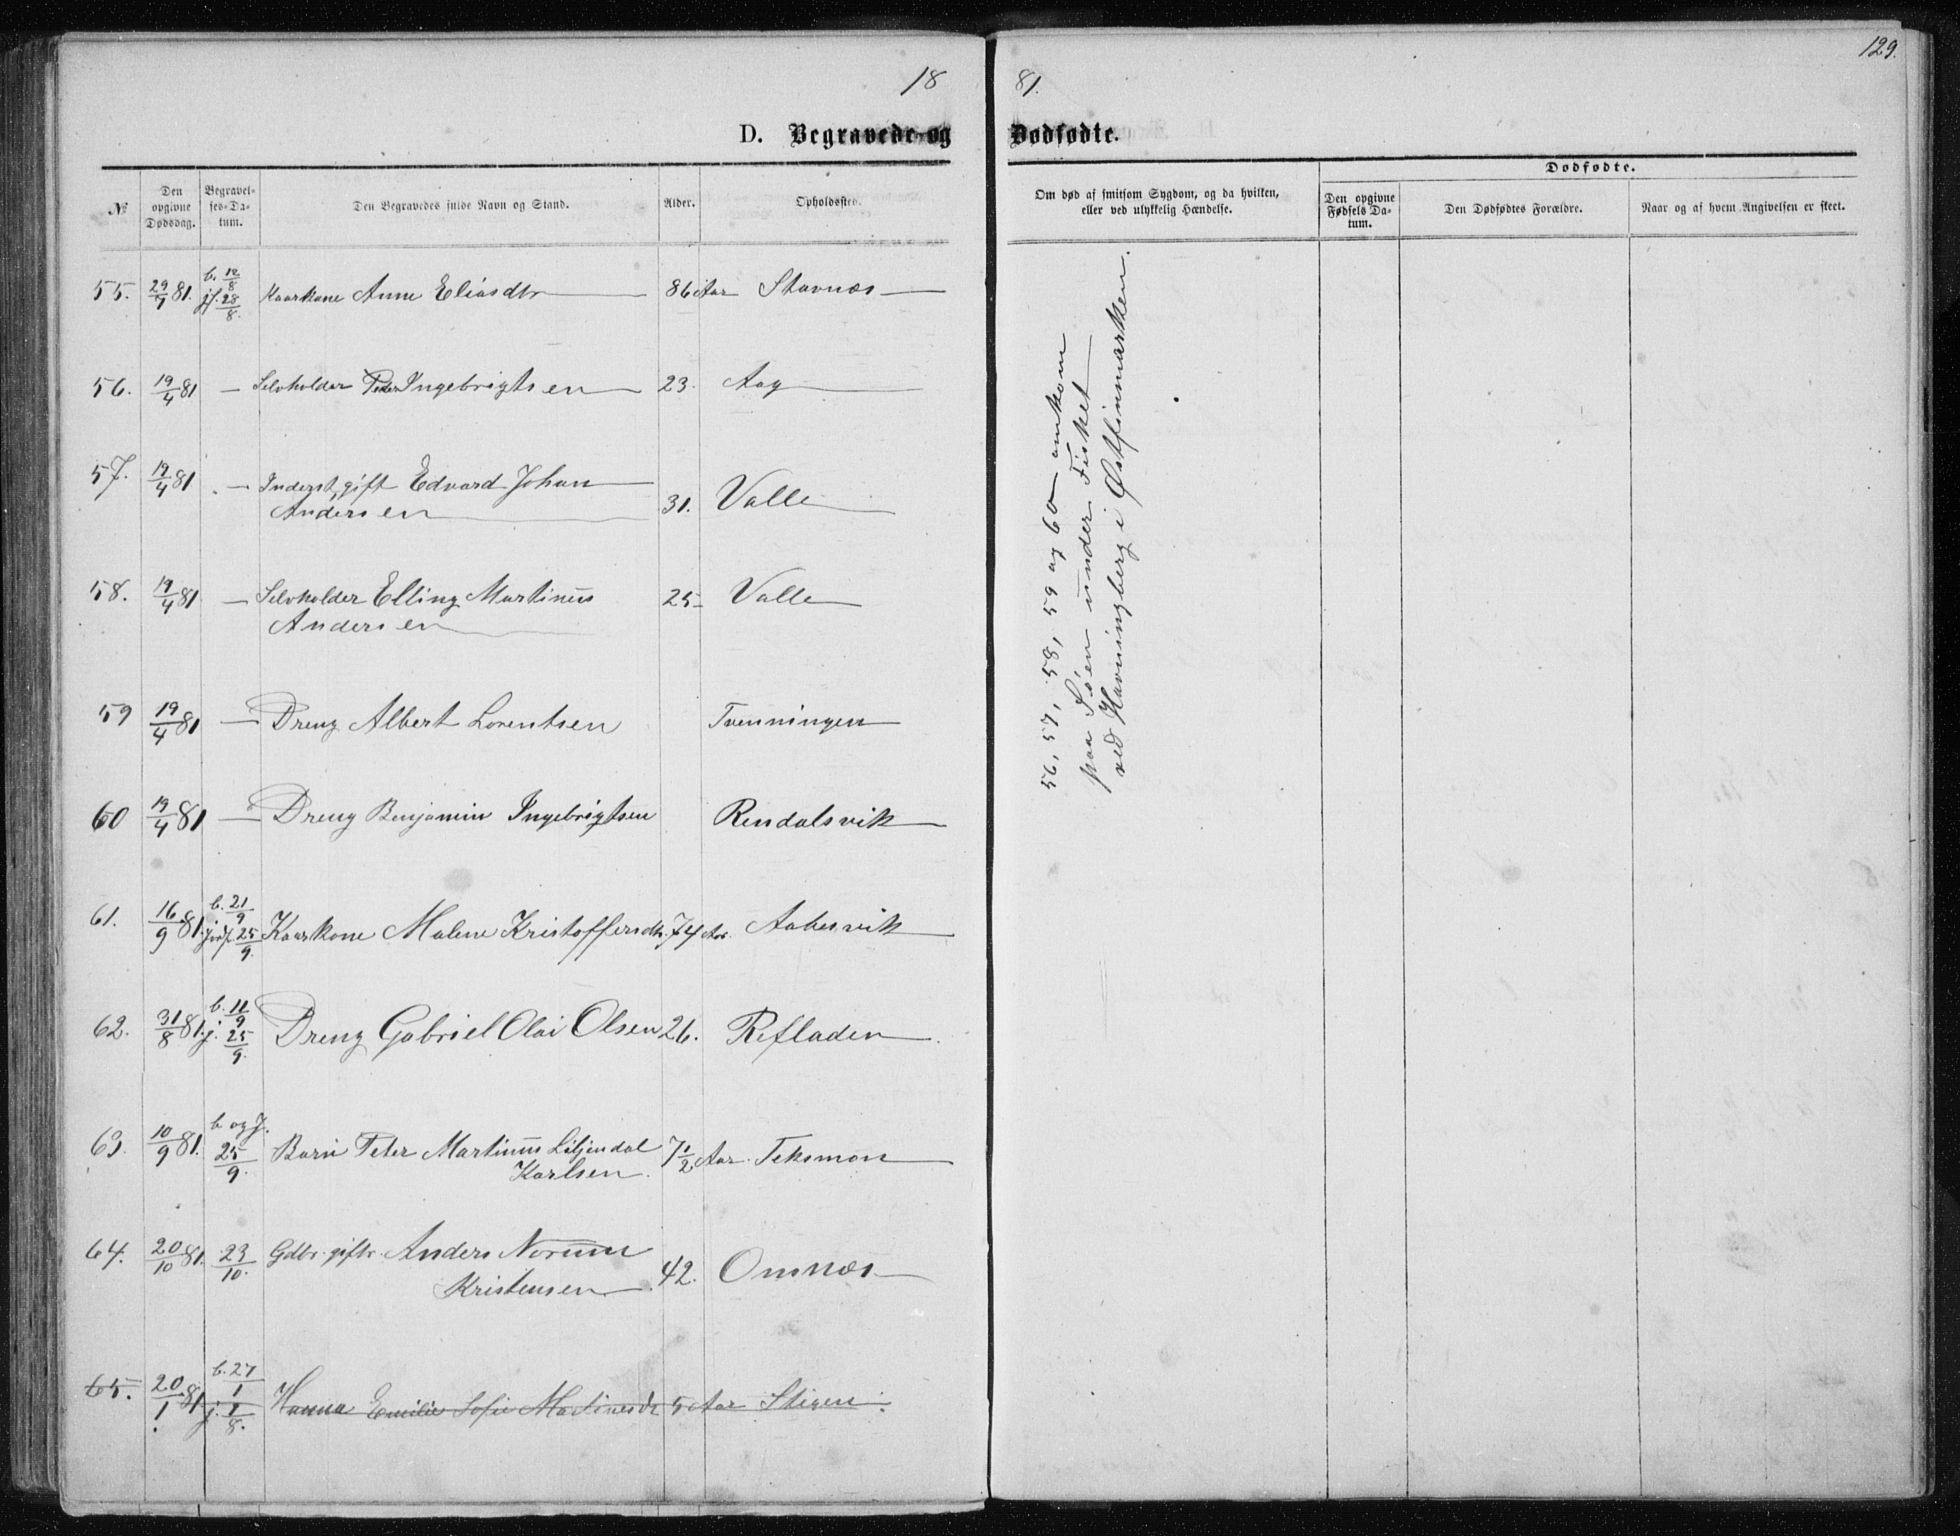 18
81.
129.
D. Begravede og
Dødfødte.
№
Den opgivne Dødsdag.
Begravelses-Datum.
Den Begravedes fulde Navn og Stand.
Alder.
Opholdssted.
Om død af smitsom Sygdom, og da hvilken, eller ved ulykkelig Hændelse.
Dødfødte.
Den opgivne Fødsels Datum.
Den Dødfødtes Forældre.
Naar og af hvem Angivelsen er skeet.
55. 29/7 81. b. 12/8 jf. 28/8. Kaarkone Anne Eliasdtr 86 Aar Stavnæs
56. 19/4 81 — Selvholder Peder Ingebrigtsen 23. Aag
57. 19/4 81 — Inderst, gift Edvard Johan
Andersen 31. Valle
58. 19/4 81 — Selvholder Elling Martinus 25 Valle
Andersen
59 19/4 81 — Dreng Albert Lorentsen Tvenningen
60 19/4 81 — Dreng Benjamin Ingebrigtsen Rendalsvik
61. 16/9 81. b. 21/9 jordf. 25/9. Kaarkone Malene Kristoffersdtr. 74 Aar. Aabesvik
62. 31/8 81. b. 11/9 j. 25/9. Dreng Gabriel Olai Olsen 26. Refladen
63. 10/9 81. b og J. 25/9. Barn Peter Martinus Liljendal
Karlsen. 7 1/2 Aar. Teksmon
64. 20/10 81. 23/10. Gdbr. giftr. Anders Norum
Kristensen 42. Omnæs
65. 20/1 81 b. 27/1 j. 1/8. Hanna Emilie Sofie Martinusdr 5 Aar Stien
56, 57, 58, 59 og 60 omkom
paa Søen under Fisket
ved Havningberg i Østfinmarken.